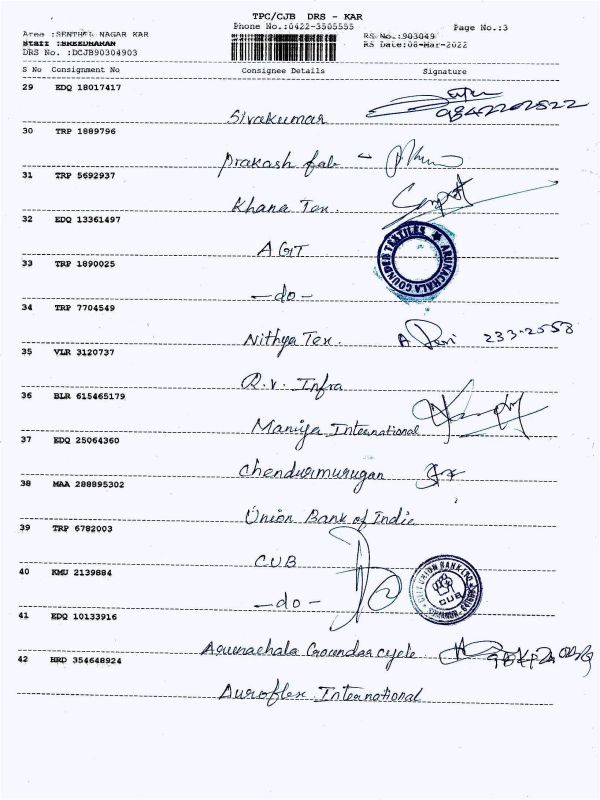 TPC/CJB DRS - KAR
Phone No.:0422-3505555 Page No.:3
Area :SENTHEL NAGAR KAR RS No.:903049
Staff :SREEDHARAN RS Date:08-Mar-2022
DRS No. :DCJB90304903
S No Consignment No Consignee Details Signature
29 EDQ 18017417
Sivakumar 9842202522
30 TRP 1889796
Prakash fab
31 TRP 5692937
Khana Tex.
32 EDQ 13361497
AGT
ARUNACHALA GOUNDER TEXTILES
33 TRP 1890025
-do-
34 TRP 7704549
Nithya Tex. 233-2558
35 VLR 3120737
R.V. Infra
36 BLR 615465179
Maniya International
37 EDQ 25064360
Chendurmurugan
38 MAA 288895302
Union Bank of India
39 TRP 6782003
CUB
40 KMU 2139884
-do-
CITY UNION BANK LTD
CUB
41 EDQ 10133916
Arunachala Gounder cycle
42 HRD 354648924
Auroflex International